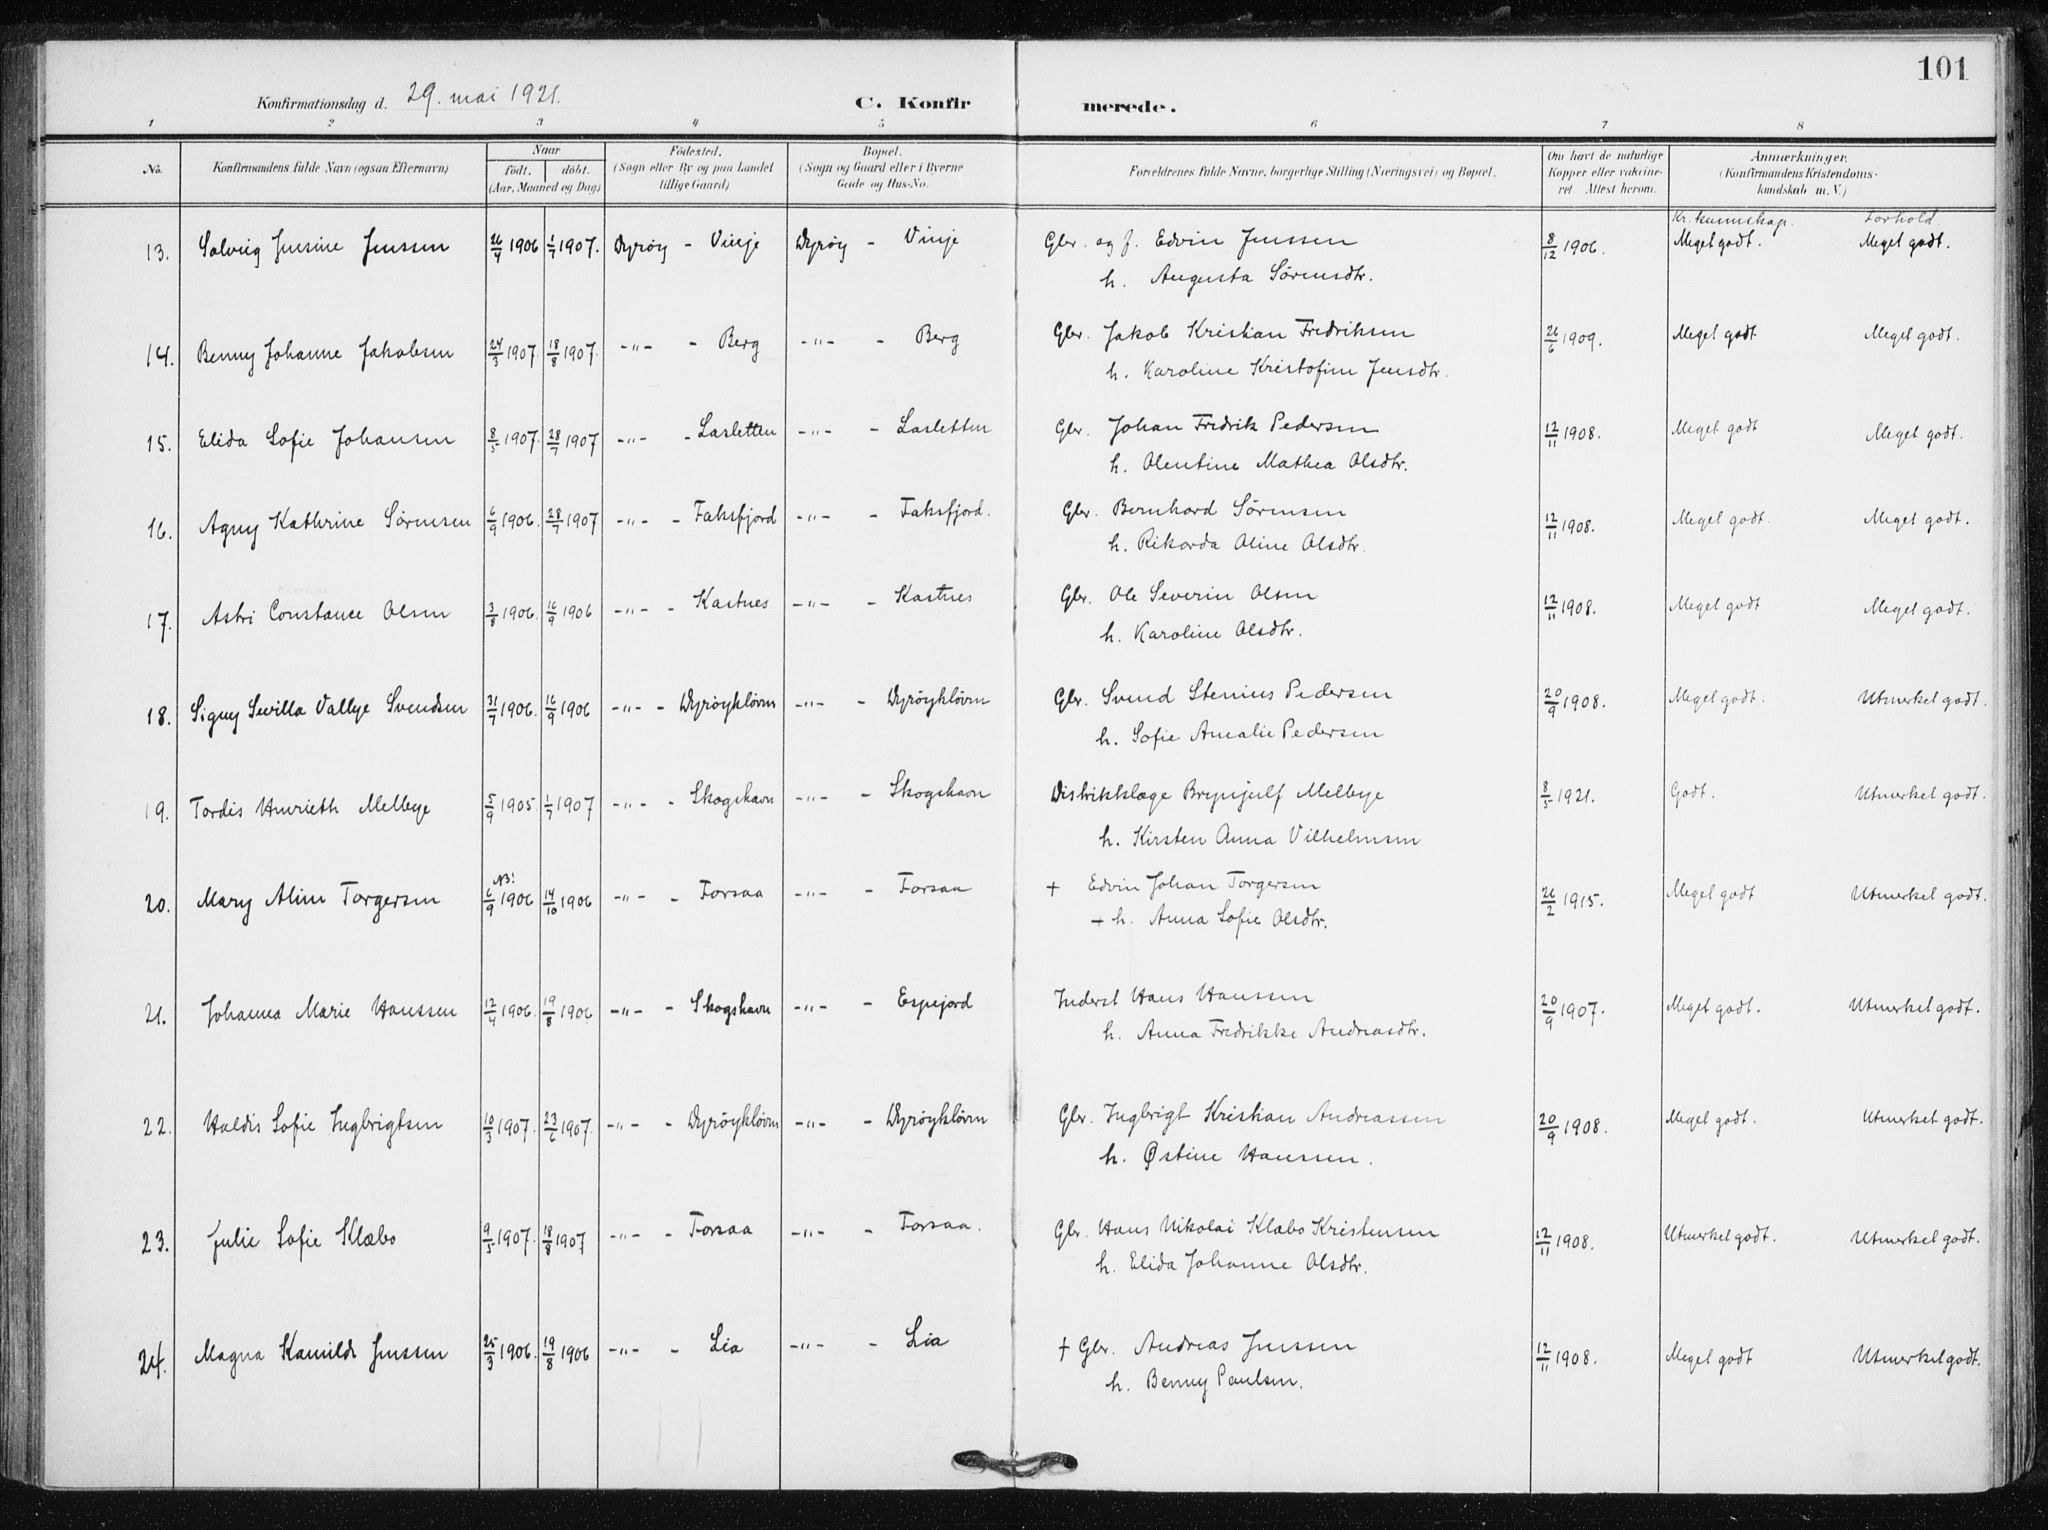 101
Konfirmationsdag d. 29. mai 1921. C. Konfirmerede.
1 2 3 4 5 6 7 8
No. Konfirmandens fulde Navn (ogsaa Efternavn) Naar født. døbt. (Aar, Maaned og Dag) Fødested. (Sogn eller By og paa Landet tillige Gaard) Bopæl. (Sogn og Gaard eller i Byerne Gade og Hus-No. Forældrenes fulde Navne, borgerlige Stilling (Næringsvei) og Bopæl. Om havt de naturlige Kopper eller vakcineret. Attest herom. Anmærkninger. (Konfirmandens Kristendomskundskab m. V.)
Kr. kunnskap. Forhold
13. Solveig Jensine Jenssen 26/4 1906 1/7 1907. Dyrøy - Vinje Dyrøy - Vinje Gbr. og f. Edvin Jenssen 8/12 1906. Meget godt. Meget godt.
h. Augusta Sørensdtr.
14. Benny Johanne Jakobsen 24/3 1907. 18/8 1907. -"- - Berg -"- - Berg Gbr. Jakob Kristian Fredriksen 26/6 1909. Meget godt Meget godt.
h. Karoline Kristofine Jensdtr.
15. Elida Sofie Johansen 8/5 1907. 28/7 1907 -"- - Lasletten -"- - Lasletten Gbr. Johan Fredrik Pedersen 12/11 1908. Meget godt Meget godt.
h. Olentine Mathea Olsdtr.
16. Agny Kathrine Sørensen 6/9 1906. 28/7 1907 -"- - Faksfjord -"- - Faksfjord. Gbr. Bernhard Sørensen 12/11 1908. Meget godt. Meget godt.
h. Rikorda Oline Olsdtr.
17. Astri Constance Olsen 3/8 1906. 16/9 1906 -"- - Kastnes -"- - Kastnes Gbr. Ole Severin Olsen 12/11 1908. Meget godt Meget godt.
h. Karoline Olsdtr.
18. Signy Sevilla Valbye Svendsen 31/7 1906. 16/9 1906 -"- - Dyrøykløven -"- - Dyrøykløven Gbr. Svend Stenius Pedersen 20/9 1908. Meget godt. Utmerket godt.
h. Sofie Amalie Pedersen
19. Tordis Henrieth Melbye 5/9 1905. 1/7 1907 -"- - Skogshavn -"- - Skogshavn Distriktslæge Brynjulf Melbye 8/5 1921. Godt. Utmerket godt.
h. Kirsten Anna Vilhelmsen
20. Mary Aline Torgersen NB! 6/9 1906 14/10 1906 -"- - Forsaa -"- - Forsaa + Edvin Johan Torgersen 26/2 1915. Meget godt Utmerket godt.
+ h. Anna Sofie Olsdtr.
21. Johanna Marie Hanssen 12/4 1906. 19/8 1906 -"- - Skogshavn -"- - Espejord Inderst Hans Hanssen 20/9 1907. Meget godt. Utmerket godt.
h. Anna Fredrikke Andreasdtr.
22. Haldis Sofie Ingbrigtsen 10/3 1907. 23/6 1907. -"- - Dyrøykløven -"- - Dyrøykløvn Gbr. Ingbrigt Kristian Andreassen 20/9 1908. Meget godt. Utmerket godt.
h. Østine Hanssen.
23. Julie Sofie Klæbo 9/5 1907. 18/8 1907 -"- - Forsaa -"- - Forsaa. Gbr. Hans Nikolai Klæbo Kristensen 12/11 1908. Utmerket godt. Utmerket godt.
h. Elida Johanne Olsdtr.
24. Magna Kamilde Jenssen 25/3 1906. 19/8 1906 -"- - Lia -"- - Lia + Gbr. Andreas Jenssen 12/11 1908. Meget godt Utmerket godt.
h. Benny Paulsen.